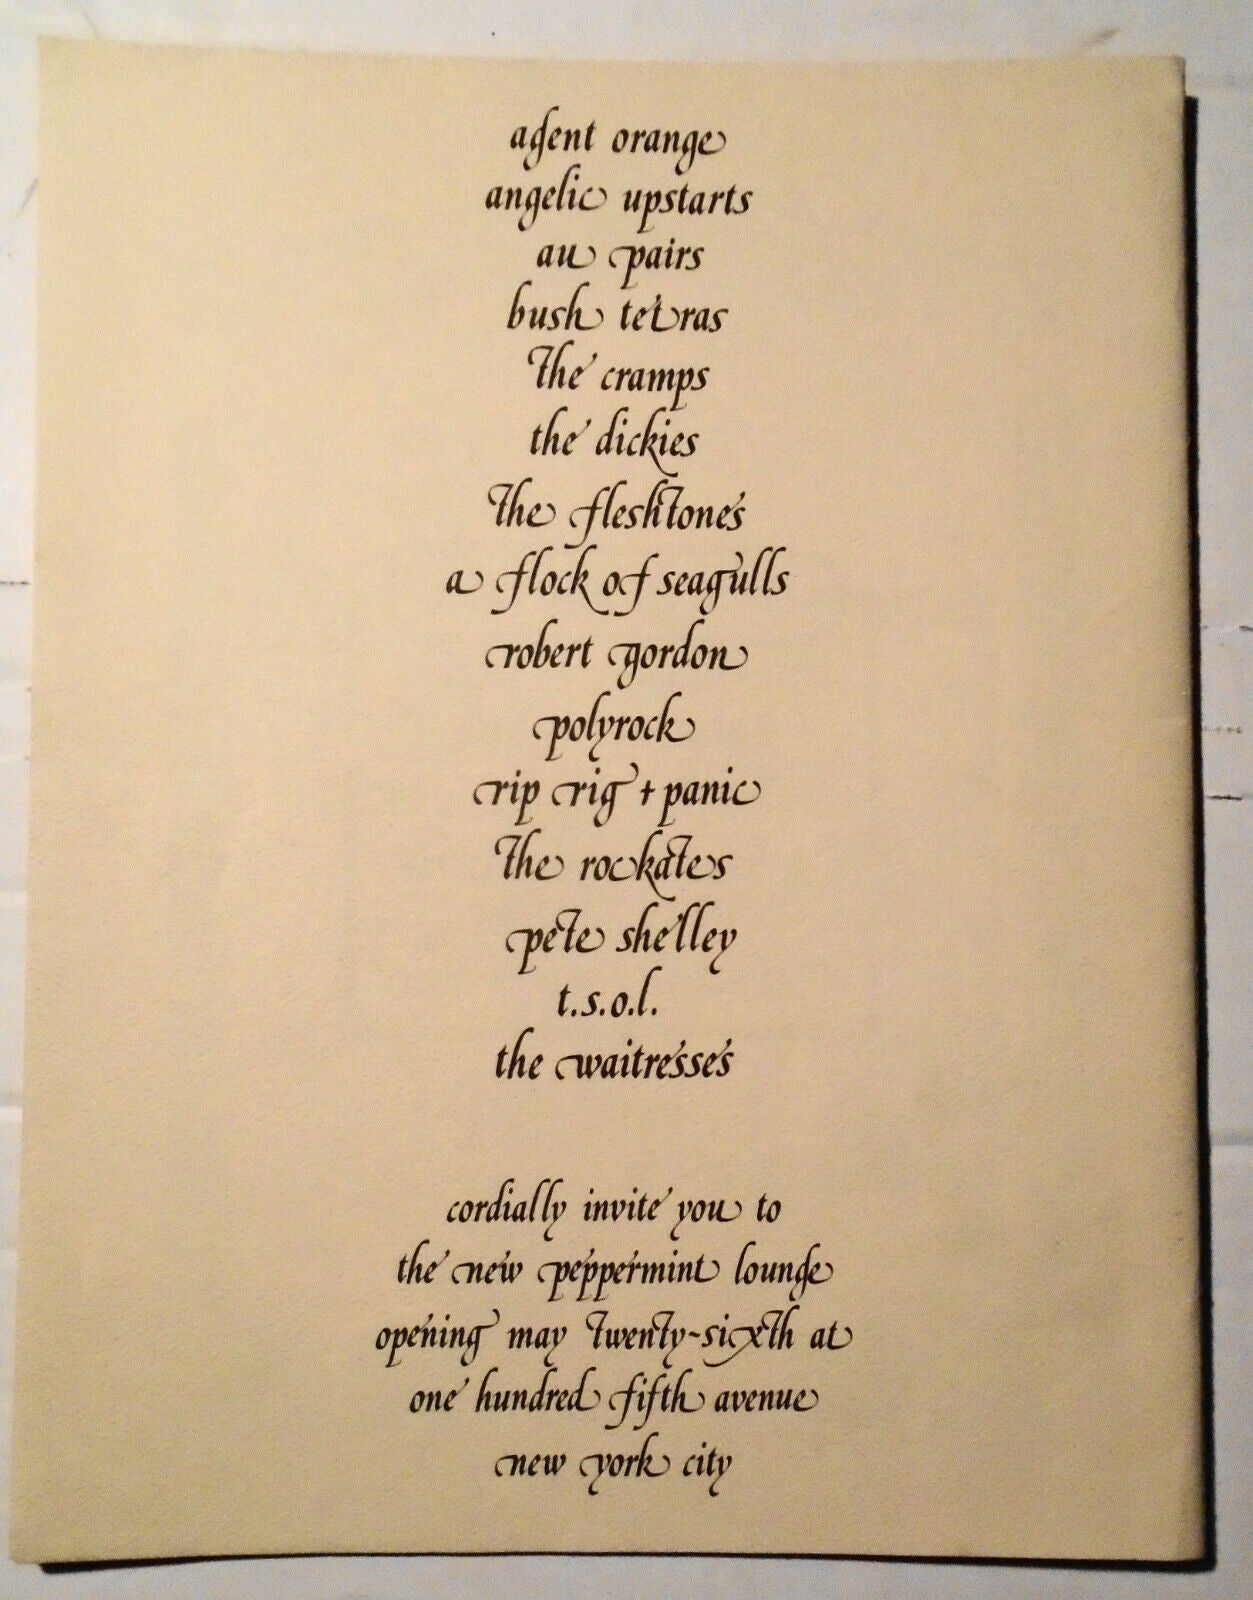 agent orange
angelic upstarts
au pairs
bush tetras
the cramps
the dickies
the fleshtones
a flock of seagulls
robert gordon
polyrock
rip rig + panic
the rockates
pete shelley
t.s.o.l.
the waitresses
cordially invite you to
the new peppermint lounge
opening may twenty-sixth at
one hundred fifth avenue
new york city